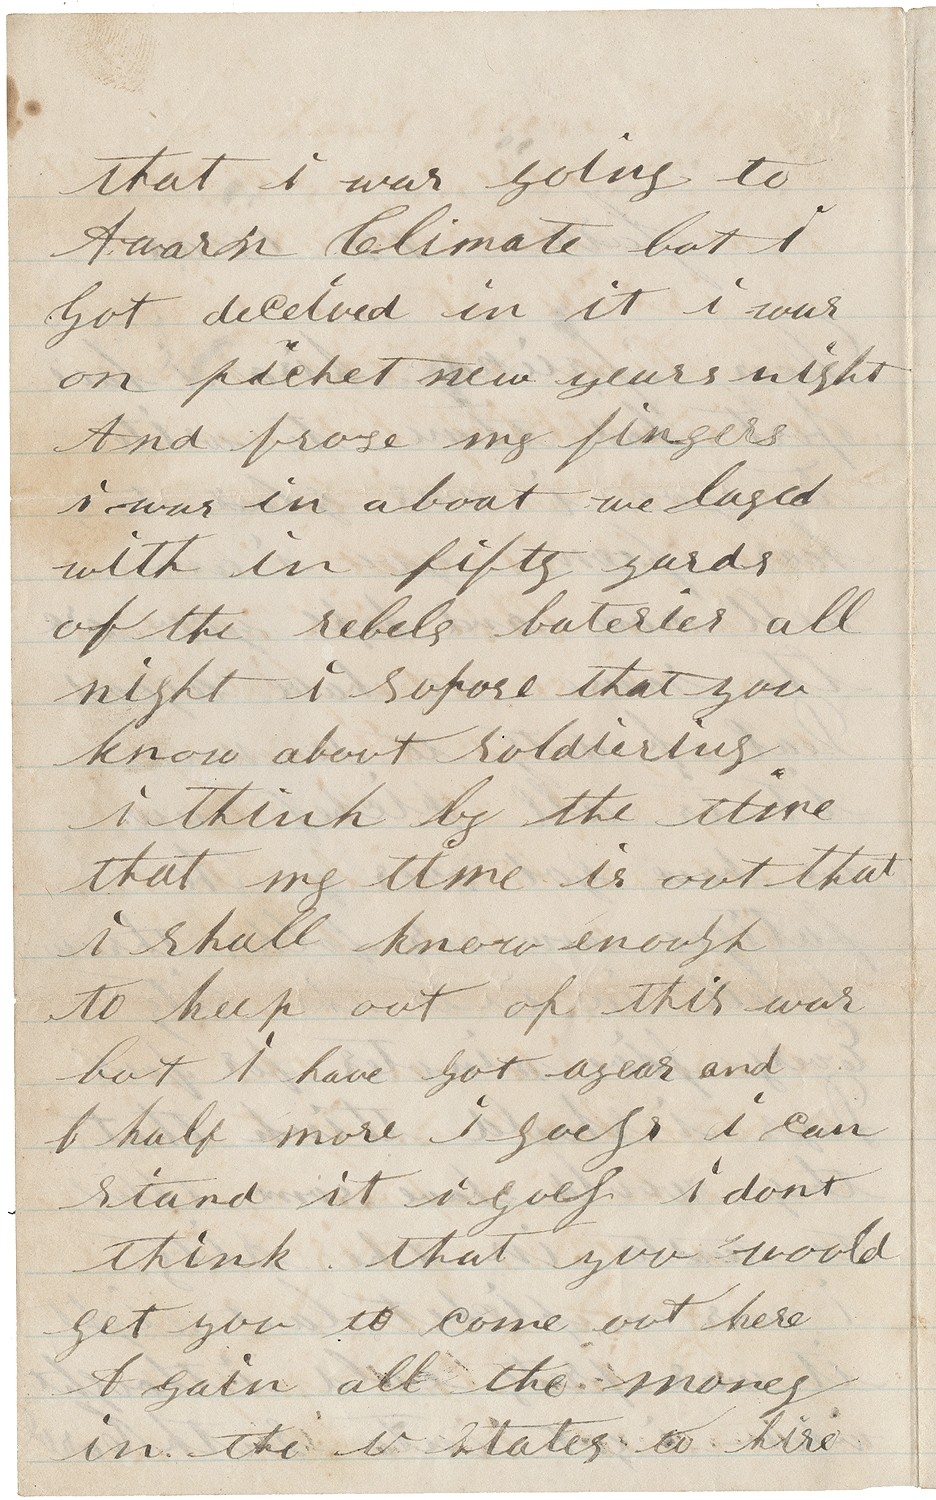 that i was going to
Awarm Climate but i
Got deceived in it i was
on picket new years night
And froze my fingers
i was in about we laged
with in fifty yards
of the rebels bateries all
night i supose that you
know about soldiering
i think by the time
that my time is out that
i shall know enough
to keep out of this war
but i have got ayear and
half more i guess i can
stand it i guess i dont
think that you would
get you to come out here
A gain all the money
in the U States to hire